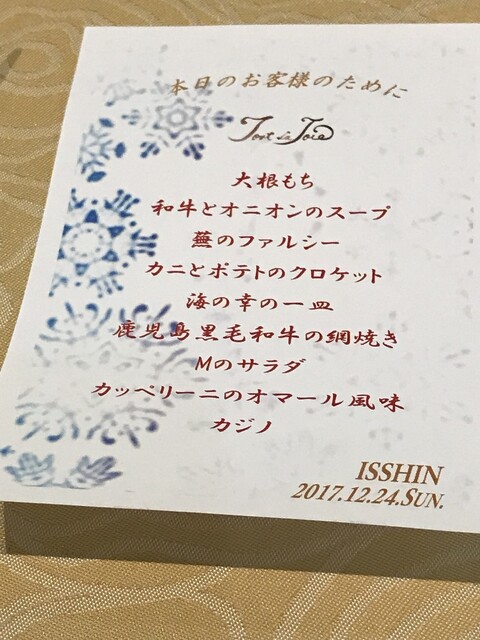 本日のお客様のために
Tort de Joie
大根もち
和牛とオニオンのスープ
蕪のファルシー
カニとポテトのクロケット
海の幸の一皿
鹿児島黒毛和牛の網焼き
Mのサラダ
カッペリーニのオマール風味
カジノ
ISSHIN
2017.12.24.SUN.